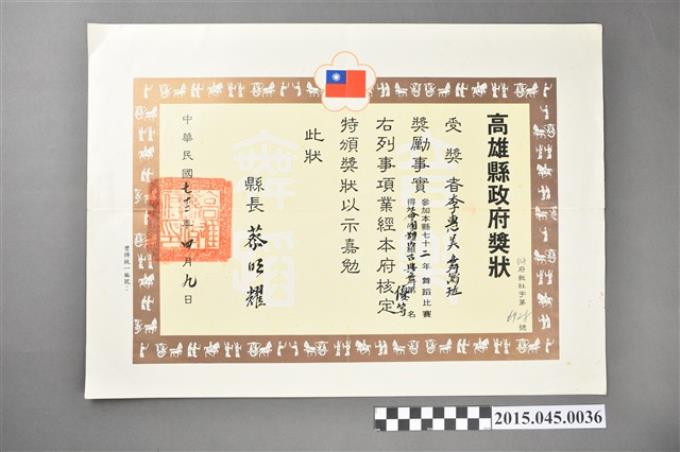 高雄縣政府獎狀
府教社字第6928號
受獎者李惠美舞蹈班
獎勵事實參加本縣七十二年舞蹈比賽
得社會團體組古典舞優等名
右列事項業經本府核定
特頒獎狀以示嘉勉
此狀
縣長 蔡明耀
中華民國七十二年四月九日
2015.045.0036